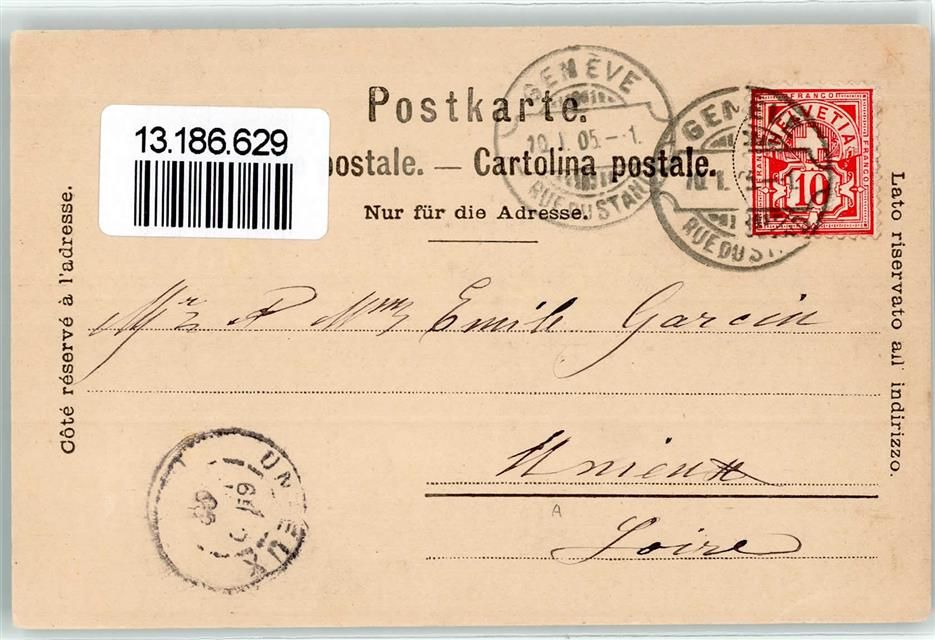 Postkarte.
postale. — Cartolina postale.
Nur für die Adresse.
13.186.629
Côté réservé à l'adresse.
Lato riservato all' indirizzo.
GENÈVE
10.I.05.-1.
RUE DU STAND
GENÈVE
10.I.05
RUE DU ST
FRANCO
HELVETIA
FRANCO
FRANCO
10
Mr & Mme Emile Garcin
Unieux
Loire
A
UNIEUX